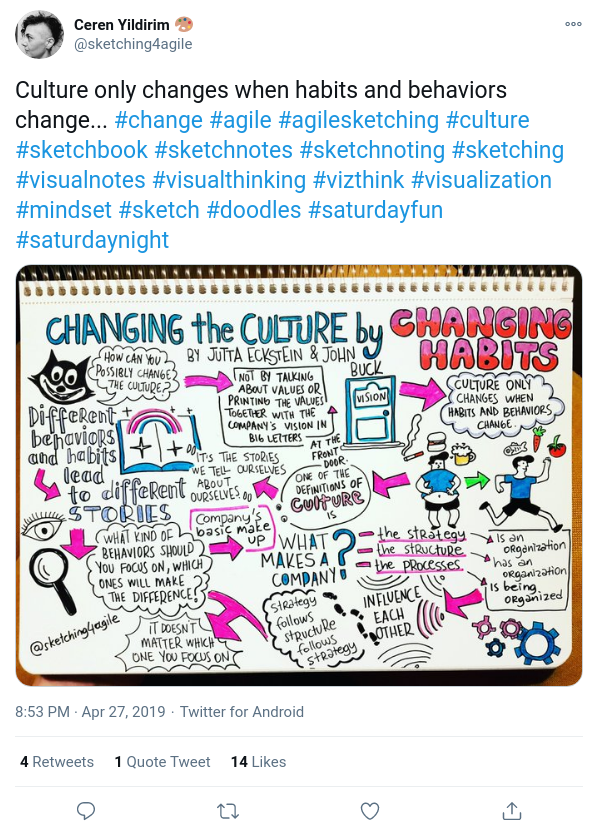 Ceren Yildirim 🎨
@sketching4agile
Culture only changes when habits and behaviors
change... #change #agile #agilesketching #culture
#sketchbook #sketchnotes #sketchnoting #sketching
#visualnotes #visualthinking #vizthink #visualization
#mindset #sketch #doodles #saturdayfun
#saturdaynight
CHANGING the CULTURE by
CHANGING
HABITS
BY JUTTA ECKSTEIN & JOHN
BUCK
HOW CAN YOU
POSSIBLY CHANGE
THE CULTURE?
NOT BY TALKING
ABOUT VALUES OR
PRINTING THE VALUES
TOGETHER WITH THE
COMPANY'S VISION IN
BIG LETTERS
AT THE
FRONT
DOOR.
VISION
CULTURE ONLY
CHANGES WHEN
HABITS AND BEHAVIORS
CHANGE.
ONE OF THE
DEFINITIONS OF
CULTURE
IS
IT'S THE STORIES
WE TELL OURSELVES
ABOUT
OURSELVES
Different
behaviors
and habits
lead
to different
STORIES
WHAT KIND OF
BEHAVIORS SHOULD
YOU FOCUS ON, WHICH
ONES WILL MAKE
THE DIFFERENCE?
Company's
basic make
up
WHAT
MAKES A
COMPANY?
the strategy
the structure
the processes
Is an
organization
has an
organization
Is being
organized
INFLUENCE
EACH
OTHER
Strategy
follows
structure
follows
strategy
IT DOESN'T
MATTER WHICH
ONE YOU FOCUS ON
@sketching4agile
8:53 PM · Apr 27, 2019 · Twitter for Android
4 Retweets 1 Quote Tweet 14 Likes